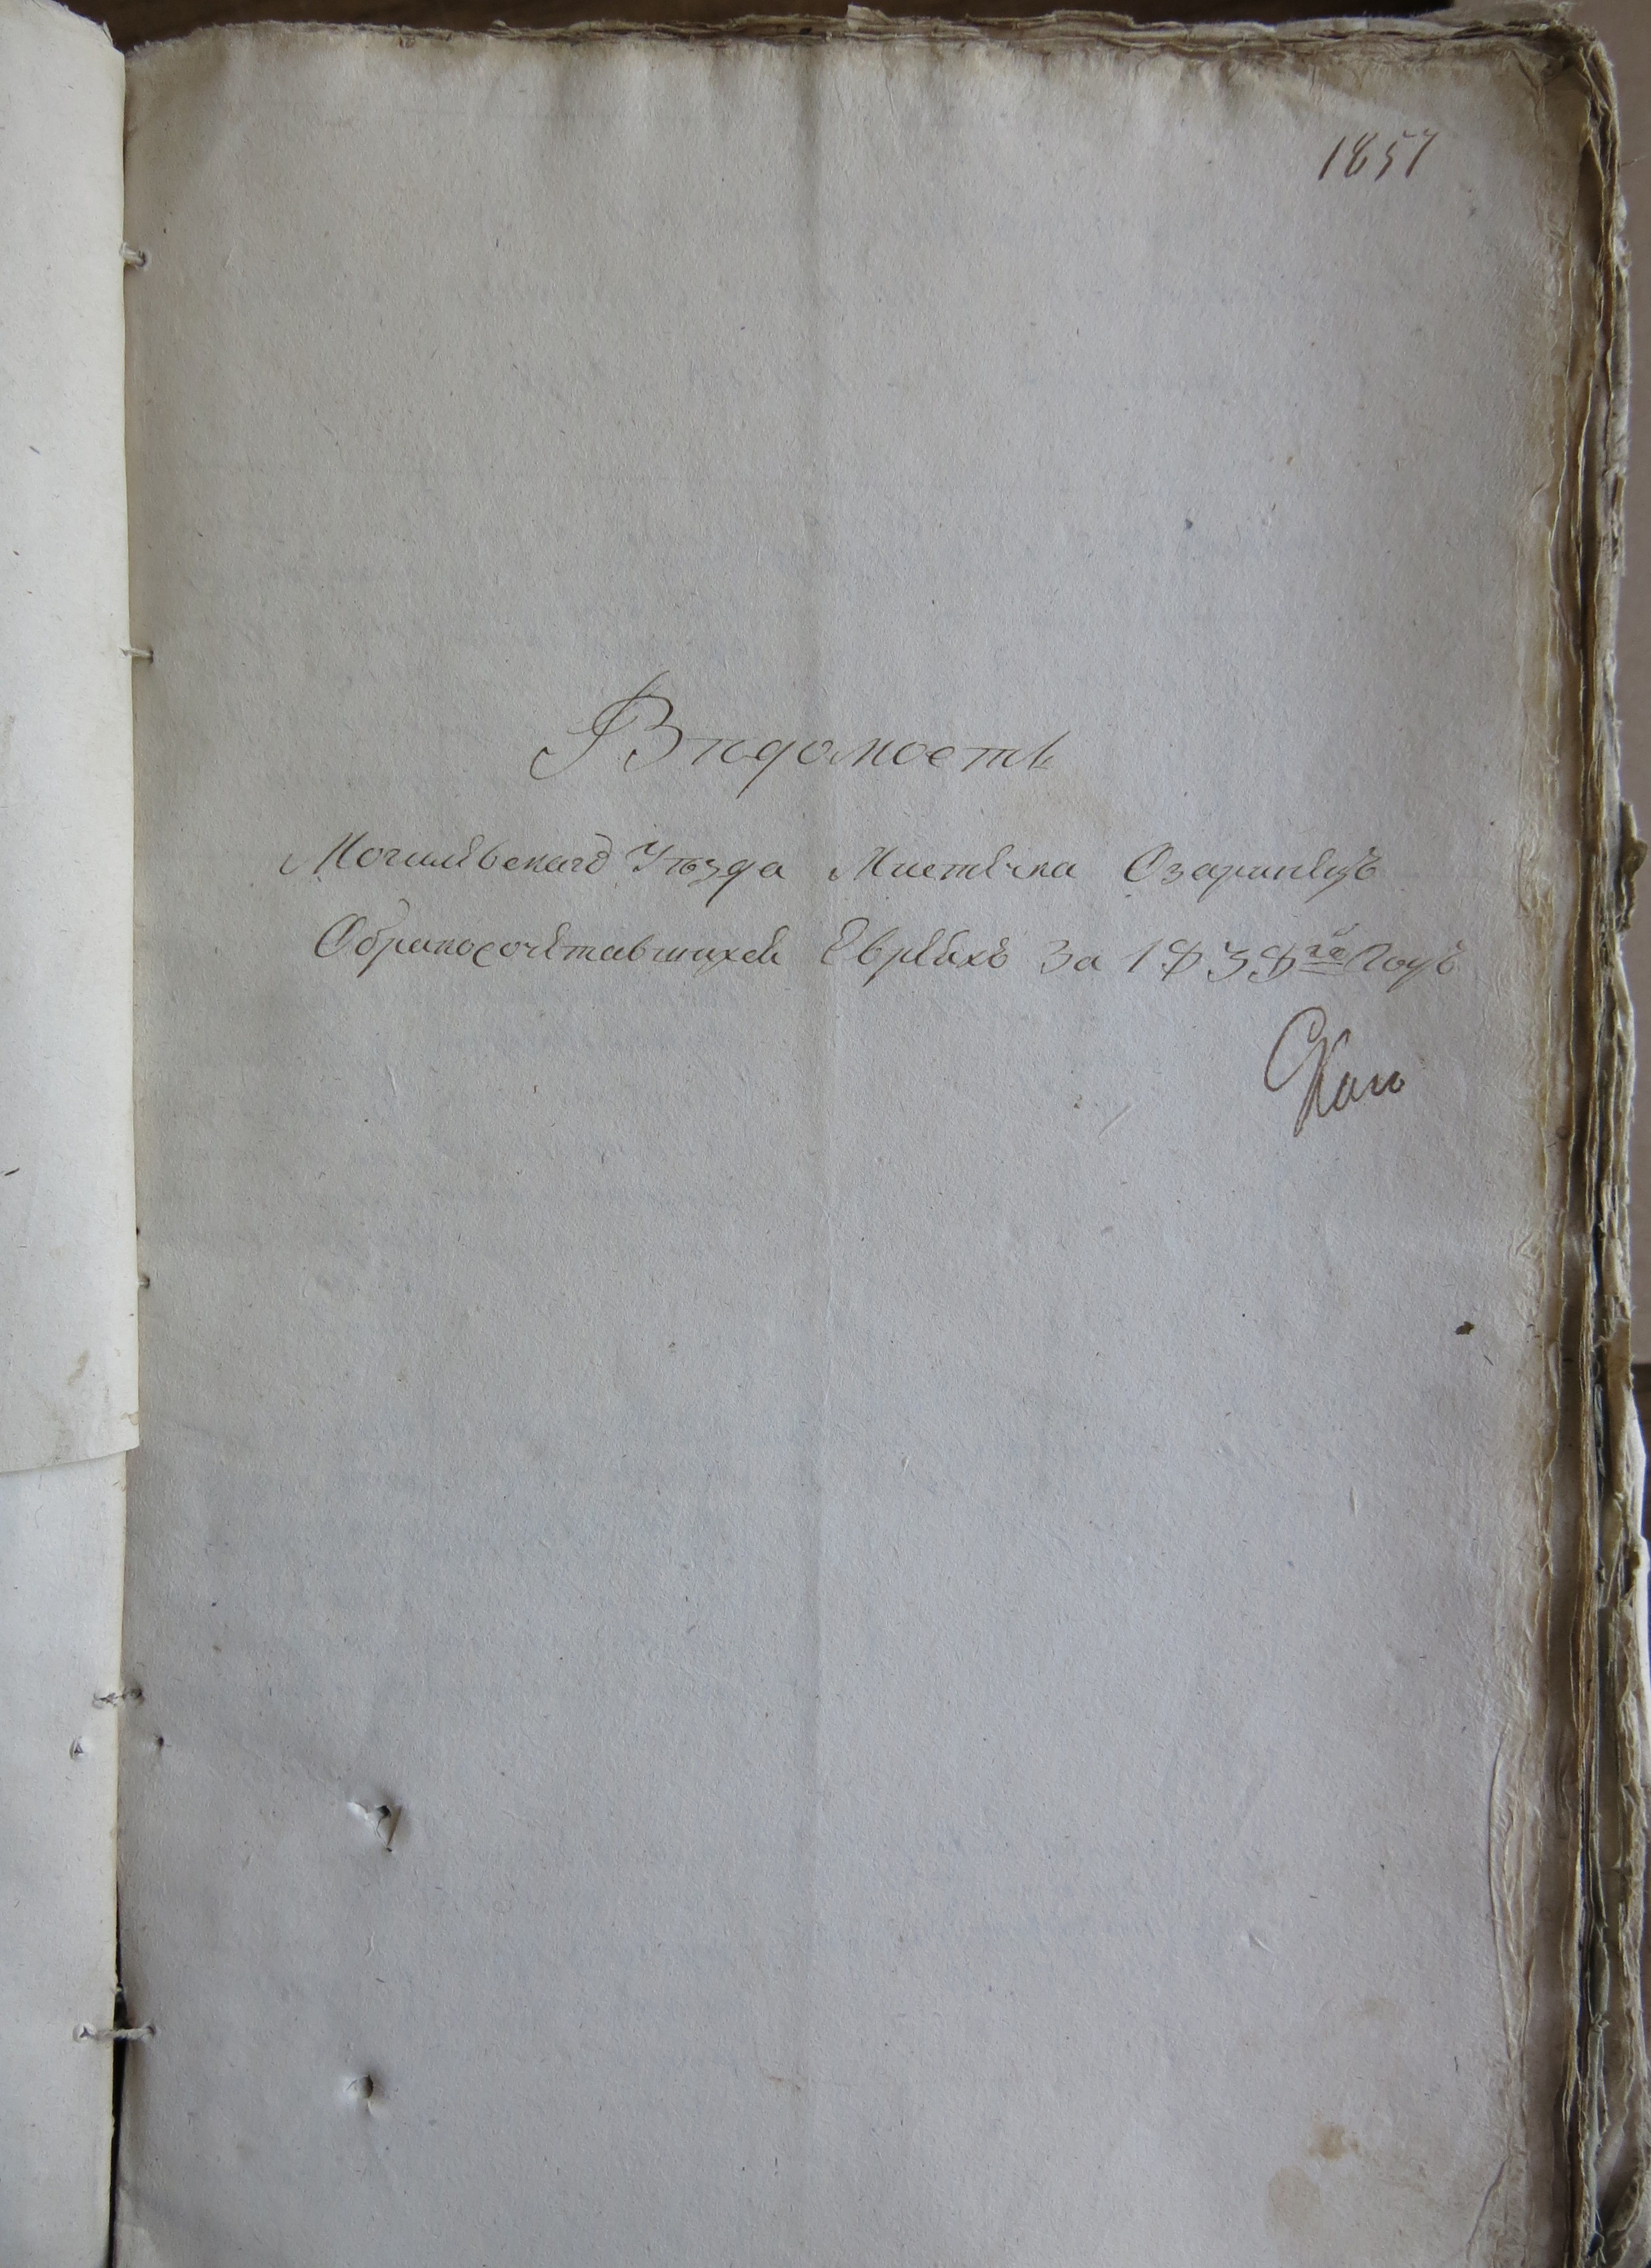 1857
Вѣдомость
Могилевскаго Уѣзда Мистечка Озаринецъ
Обракосочетавшихся Евреяхъ За 1838го Годъ